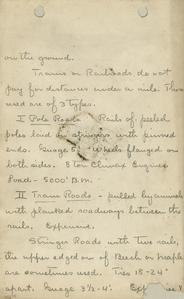 on the ground.
Trams or Railroads do not
pay for distances under a mile. Those
used are of 3 types.
I Pole Roads - Rails of peeled
poles laid on stringers with pinned
ends. Guage 5' - Wheels flanged on
both sides. 8 ton Climax Engines
Load - 5000' B.M.
II Tram Roads - pulled by animals
with planked roadways between the
rails. Expensive.
Stringer Roads with two rails,
the upper edged on of Beech or Maple
are sometimes used. Ties 18-24"
apart. Guage 3½-4'.